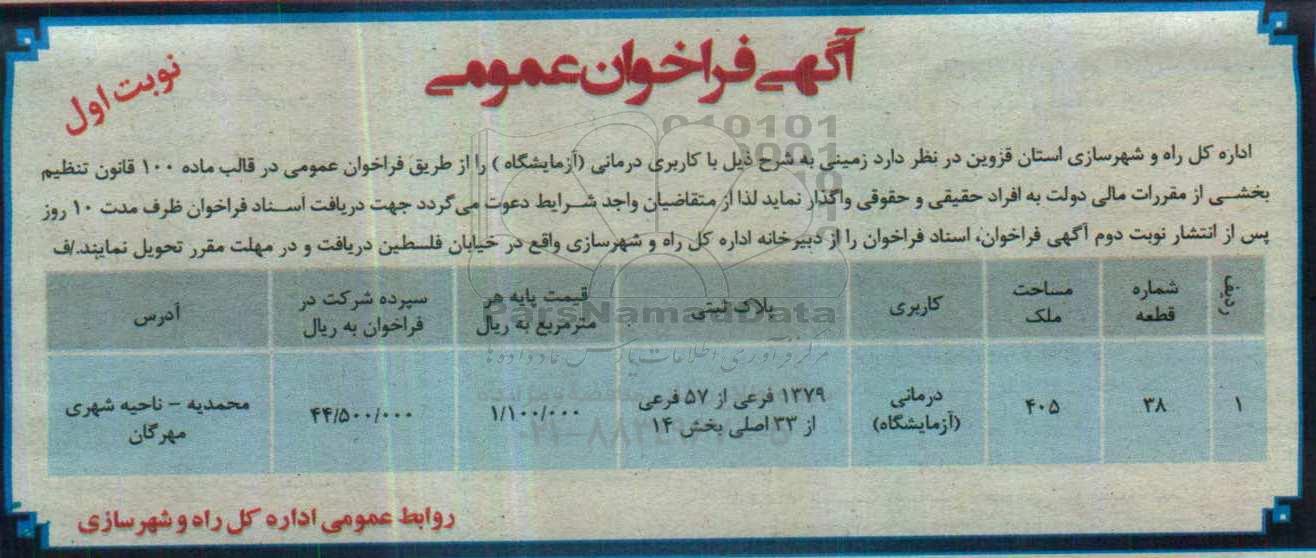 آگهی فراخوان عمومی
نوبت اول
اداره کل راه و شهرسازی استان قزوین در نظر دارد زمینی به شرح ذیل با کاربری درمانی (آزمایشگاه ) را از طریق فراخوان عمومی در قالب ماده ۱۰۰ قانون تنظیم
بخشی از مقررات مالی دولت به افراد حقیقی و حقوقی واگذار نماید لذا از متقاضیان واجد شرایط دعوت می‌گردد جهت دریافت اسناد فراخوان ظرف مدت ۱۰ روز
پس از انتشار نوبت دوم آگهی فراخوان، اسناد فراخوان را از دبیرخانه اداره کل راه و شهرسازی واقع در خیابان فلسطین دریافت و در مهلت مقرر تحویل نمایند./ف
ردیف شماره قطعه مساحت ملک کاربری پلاک ثبتی قیمت پایه هر مترمربع به ریال سپرده شرکت در فراخوان به ریال آدرس
۱ ۳۸ ۴۰۵ درمانی (آزمایشگاه) ۱۳۷۹ فرعی از ۵۷ فرعی از ۳۳ اصلی بخش ۱۴ ۱/۱۰۰/۰۰۰ ۴۴/۵۰۰/۰۰۰ محمدیه – ناحیه شهری مهرگان
روابط عمومی اداره کل راه و شهرسازی
ParsNamadData
مرکز فرآوری اطلاعات پارس نماد داده ها